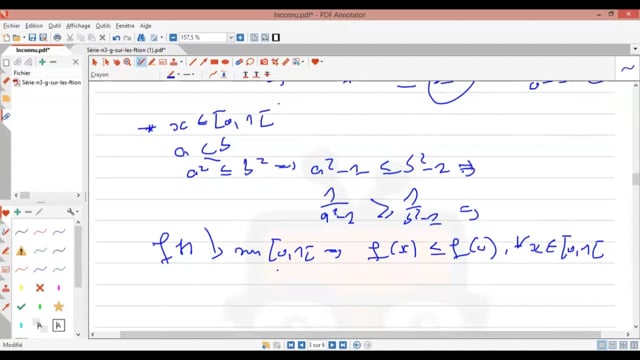 Inconnu.pdf* - PDF Annotator
Fichier Edition Affichage Outils Extras Fenêtre Aide
157,5 %
Inconnu.pdf* Série-n3-g-sur-les-ftion (1).pdf*
Crayon
Fichier
Série-n3-g-sur-les-ftion
Favoris
* x ∈ [0,1[
a ≤ b
a² ≤ b² ⟹ a²-1 ≤ b²-1 ⟹
1/(a²-1) ≥ 1/(b²-1) ⟹
sur [0,1[ ⟹ f(x) ≤ f(0), ∀x ∈ [0,1[
3 sur 9
Modifié